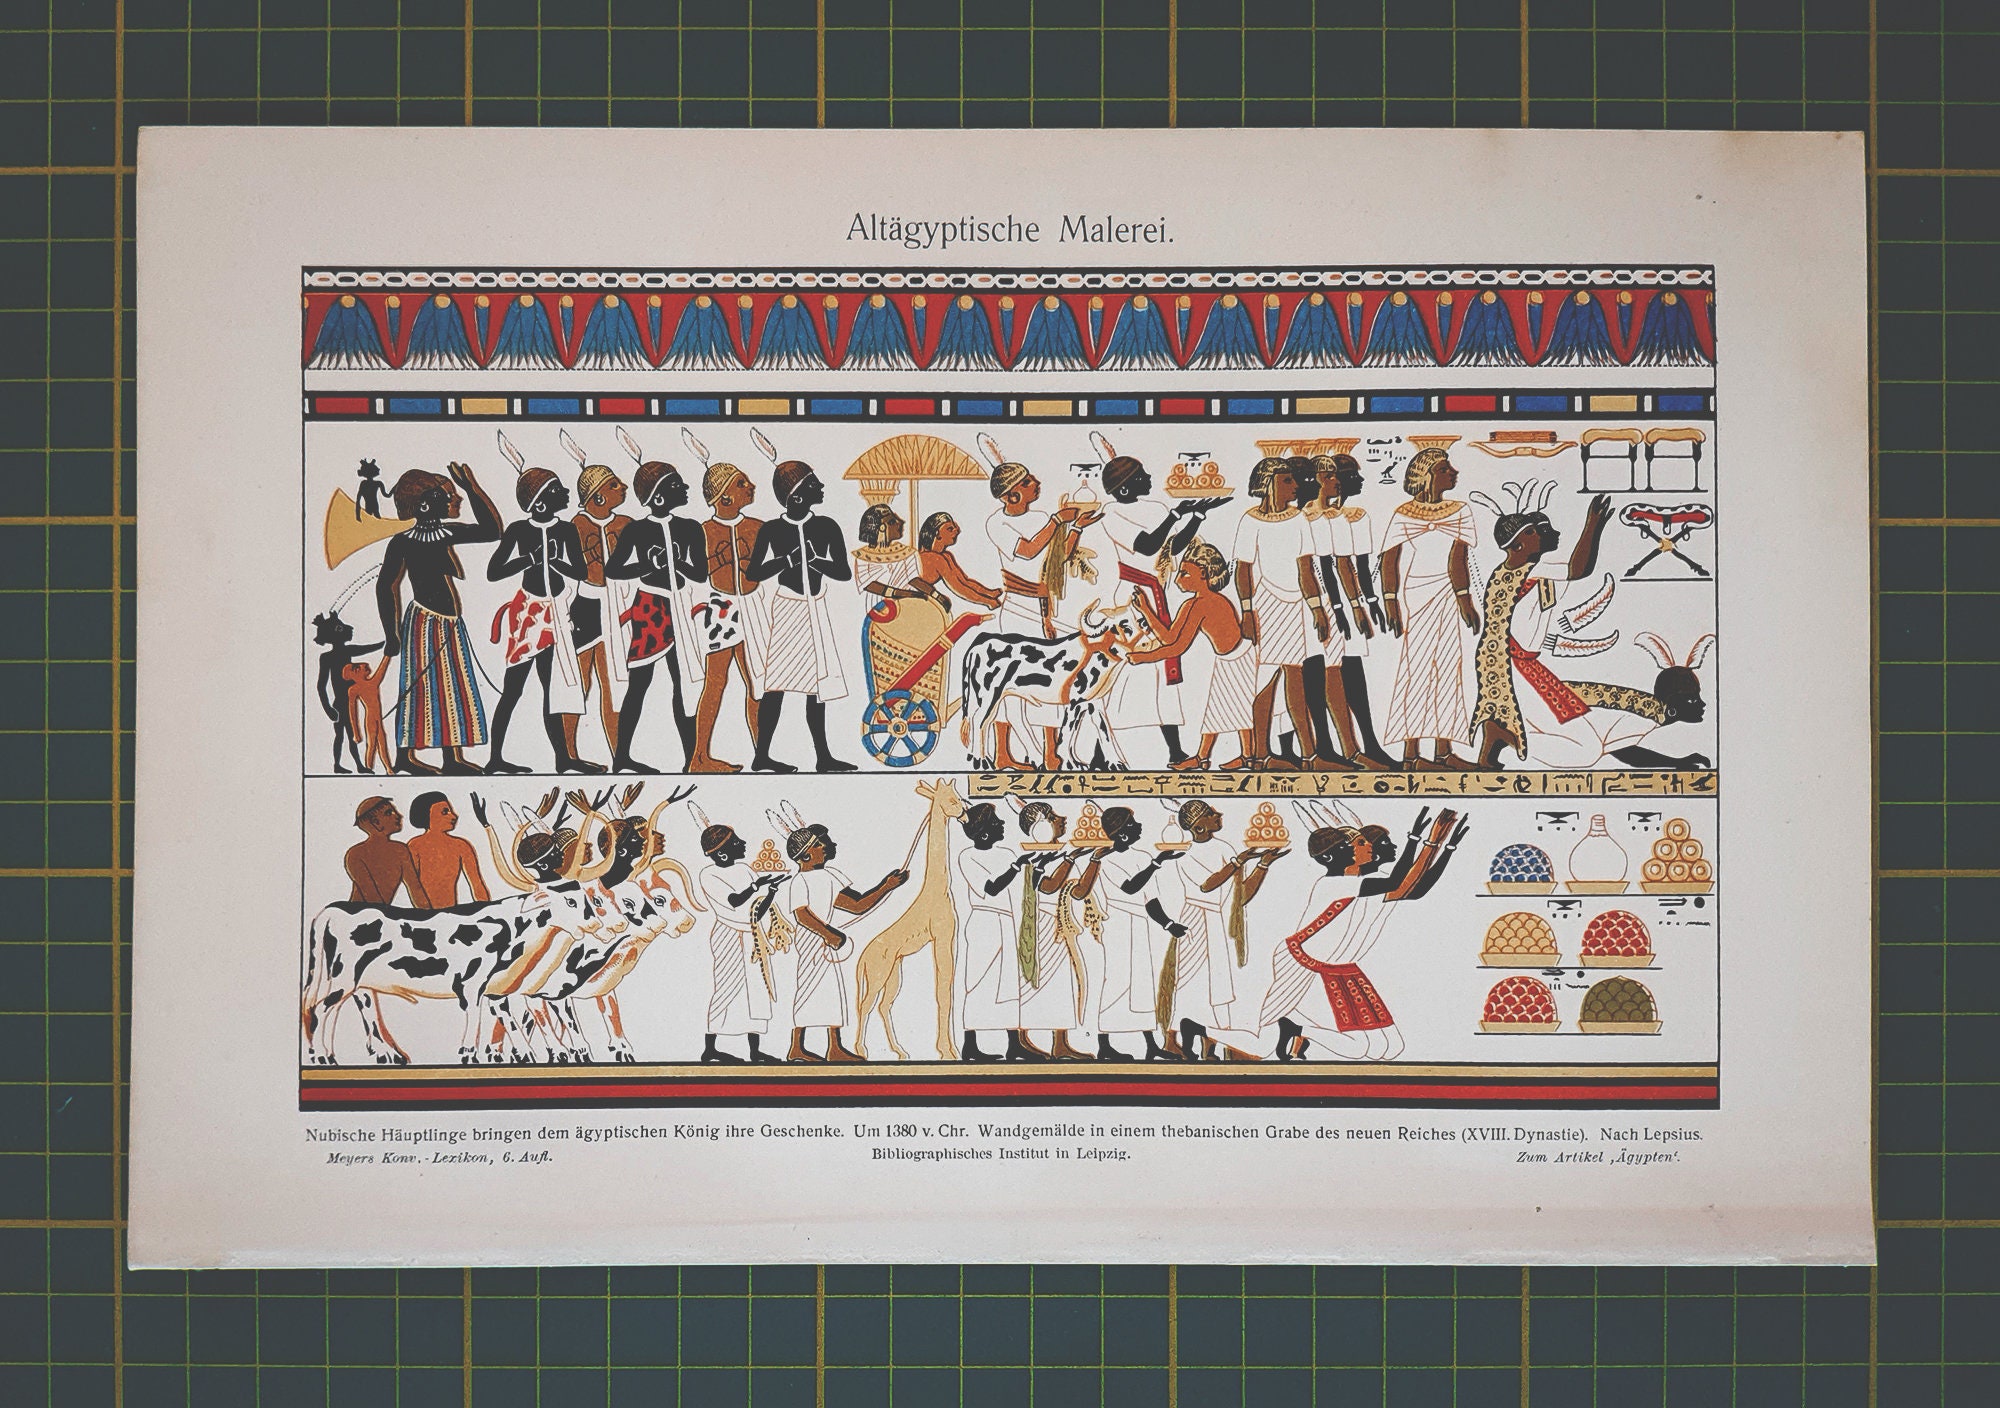 Altägyptische Malerei.
Nubische Häuptlinge bringen dem ägyptischen König ihre Geschenke. Um 1380 v. Chr. Wandgemälde in einem thebanischen Grabe des neuen Reiches (XVIII. Dynastie). Nach Lepsius.
Meyers Konv.-Lexikon, 6. Aufl.
Bibliographisches Institut in Leipzig.
Zum Artikel ‚Ägypten‘.